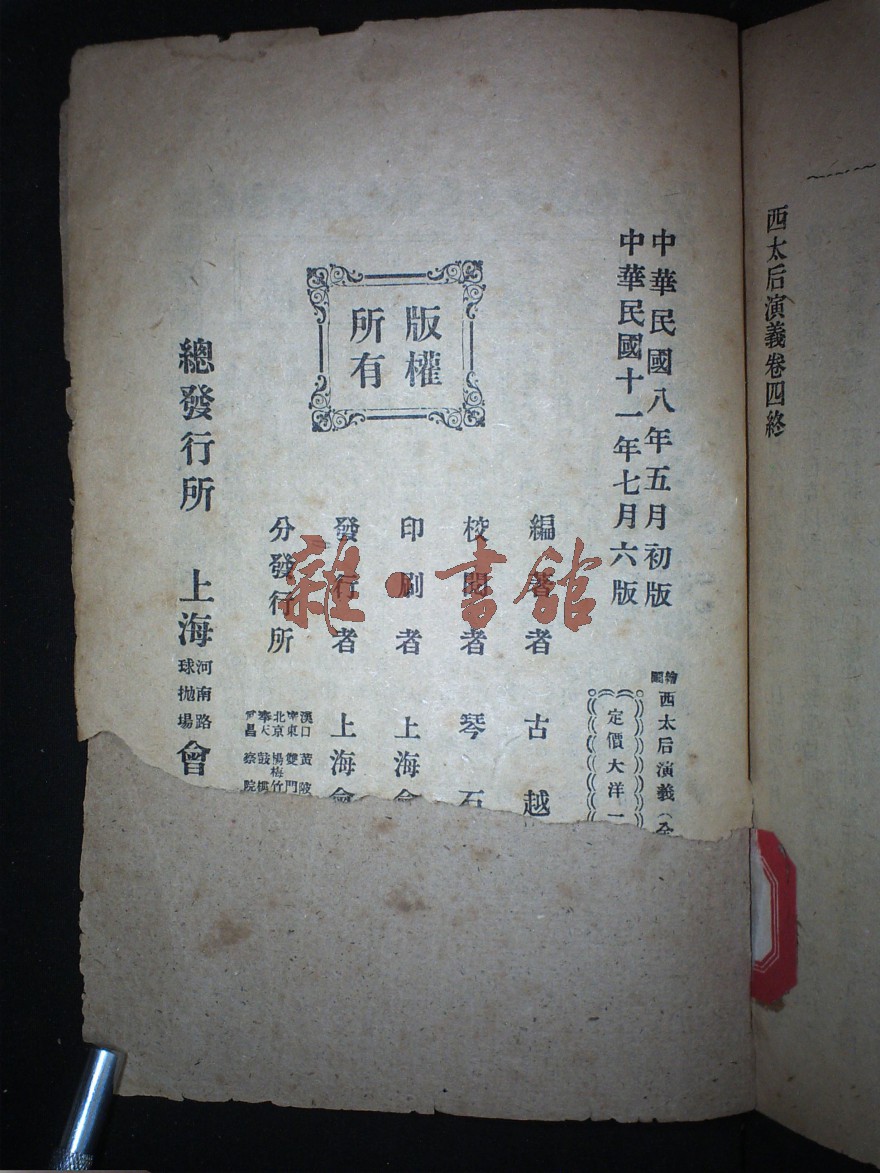 西太后演義卷四終
中華民國八年五月初版
中華民國十一年七月六版
繪圖西太后演義(全
定價大洋一
編著者 古越
校閱者 琴石
印刷者 上海會
發行者 上海會
分發行所
漢口 黃陂
廣東 雙門
北京 楊梅竹
奉天 鼓樓
察院
版權所有
總發行所 上海河南路拋球場會
雜·書館